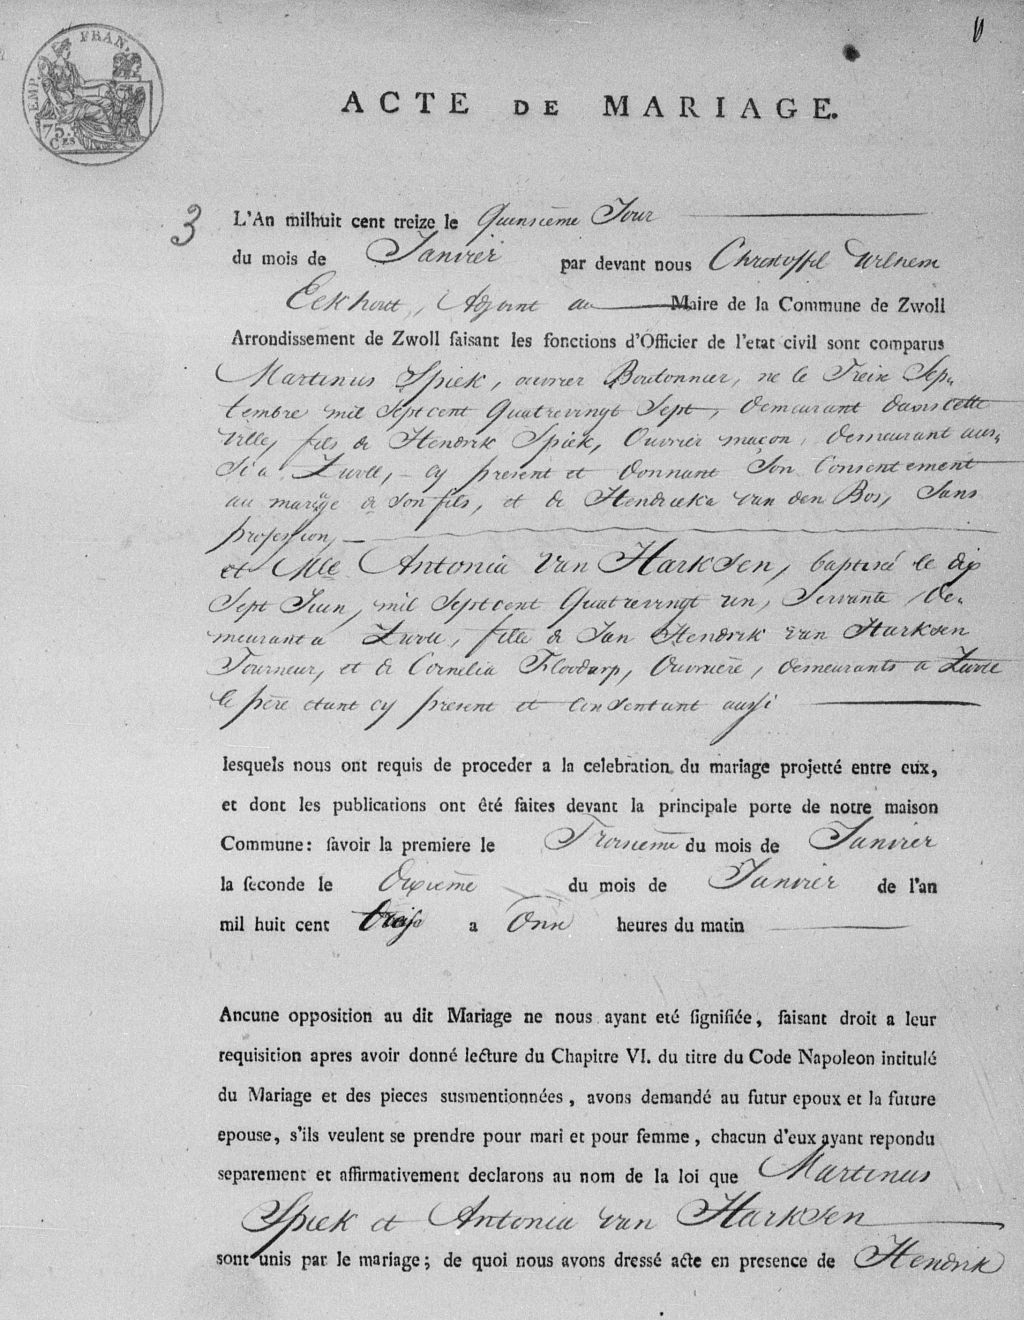 EMP. FRAN.
75. Ces
ACTE DE MARIAGE.
3
L'An milhuit cent treize le Quinsieme Jour
du mois de Janvier par devant nous Christoffel Wilhem
Eekhout, Adjoint au Maire de la Commune de Zwoll
Arrondissement de Zwoll faisant les fonctions d'Officier de l'etat civil sont comparus
Martinus Spiek, ouvrier Boutonnier, ne le Treize Sep-
tembre mil Sept cent Quatrevingt Sept, demeurant dans cette
ville, fils de Hendrik Spiek, Ouvrier maçon, demeurant aus-
si a Zwoll, cy present et donnant Son Consentement
au mariage de Son fils, et de Hendrieka van den Bos, Sans
profession,
et Mlle Antonia van Harksen, baptisé le dix
Sept Juin, mil Sept cent Quatrevingt un, Servante, De-
meurant a Zwoll, fille de Jan Hendrik van Harksen
Tourneur, et de Cornelia Floodarp, Ouvrière, demeurants a Zwoll
le père etant cy present et Consentant aussi
lesquels nous ont requis de proceder a la celebration du mariage projetté entre eux,
et dont les publications ont été faites devant la principale porte de notre maison
Commune: savoir la premiere le Troisieme du mois de Janvier
la seconde le Dixieme du mois de Janvier de l'an
mil huit cent Treise a Onze heures du matin
Ancune opposition au dit Mariage ne nous ayant eté signifiée, faisant droit a leur
requisition apres avoir donné lecture du Chapitre VI. du titre du Code Napoleon intitulé
du Mariage et des pieces susmentionnées, avons demandé au futur epoux et la future
epouse, s'ils veulent se prendre pour mari et pour femme, chacun d'eux ayant repondu
separement et affirmativement declarons au nom de la loi que Martinus
Spiek et Antonia van Harksen
sont unis par le mariage; de quoi nous avons dressé acte en presence de Hendrik